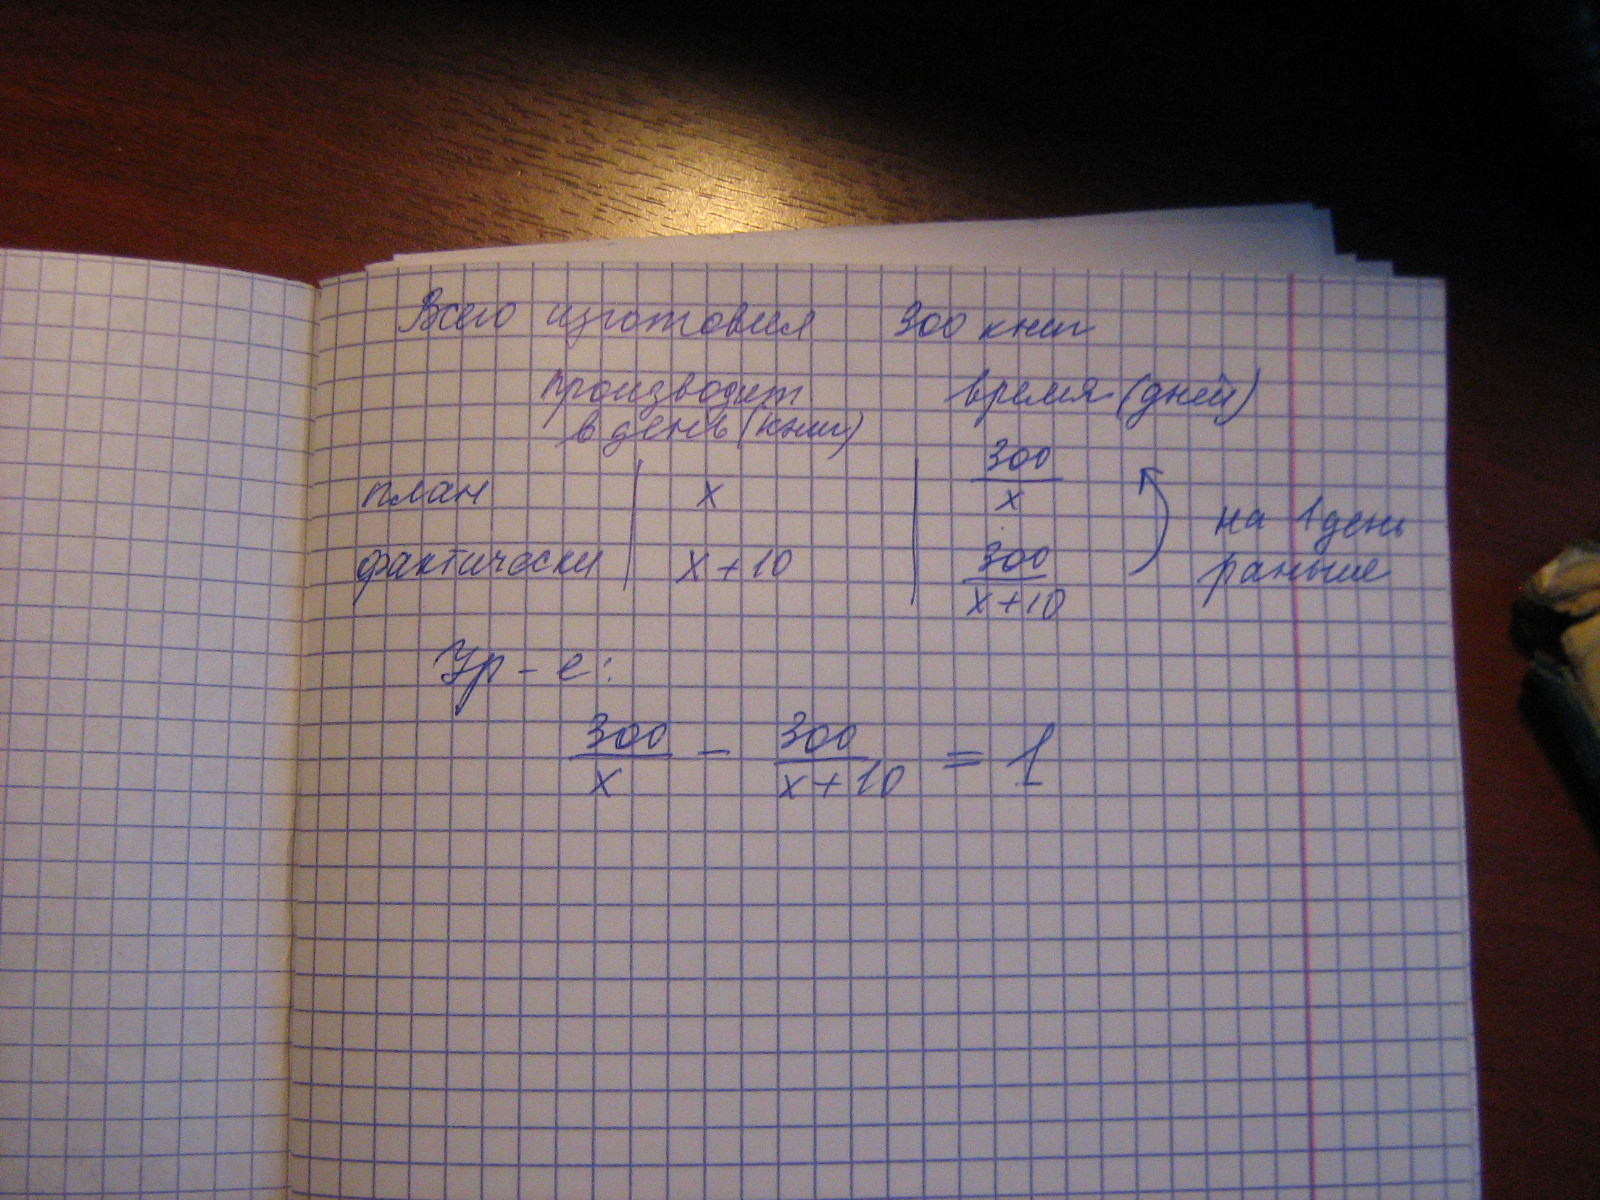 Всего изготовил 300 книг
производит время (дней)
в день (книг)
план x 300/x
на 1 день
фактически x+10 300/(x+10) раньше
Ур-е:
300/x - 300/(x+10) = 1